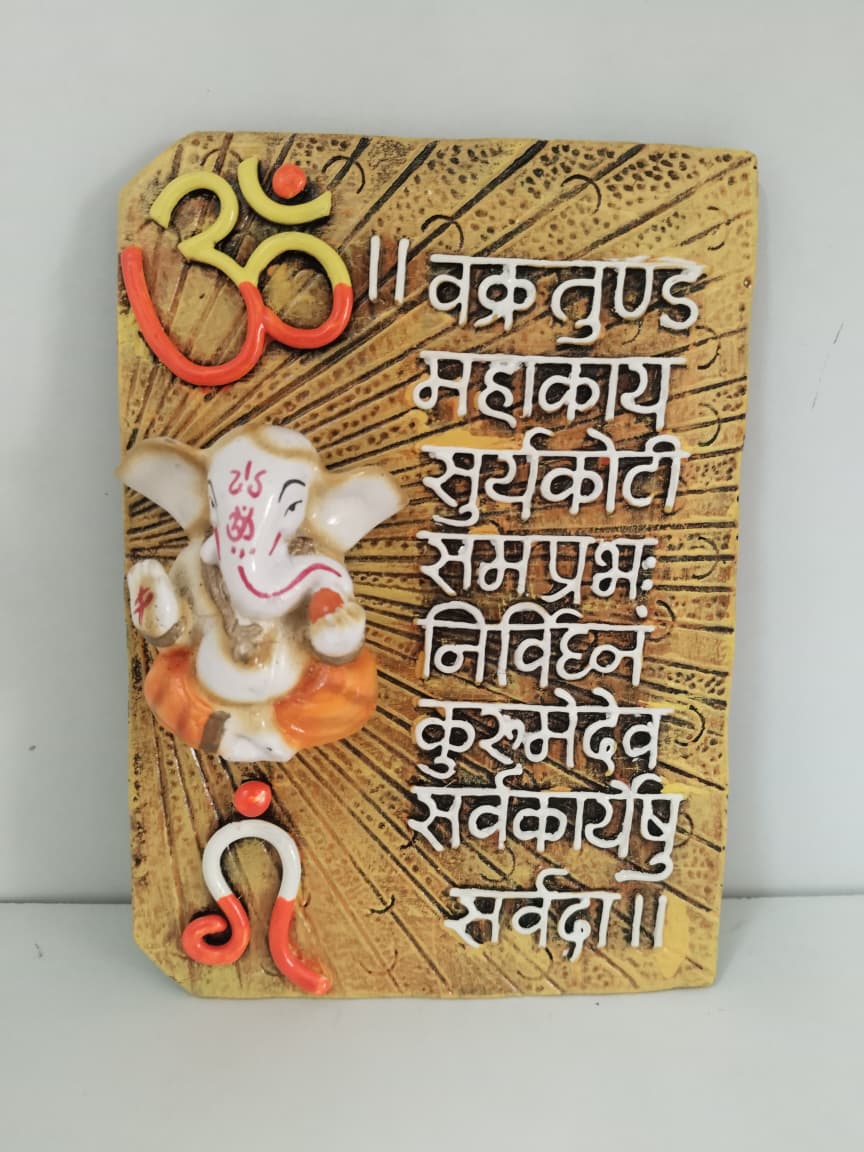 ॐ
॥ वक्र तुण्ड
महाकाय
सुर्यकोटी
सम प्रभः
निर्विघ्नं
कुरुमेदेव
सर्वकार्येषु
सर्वदा ॥
गं